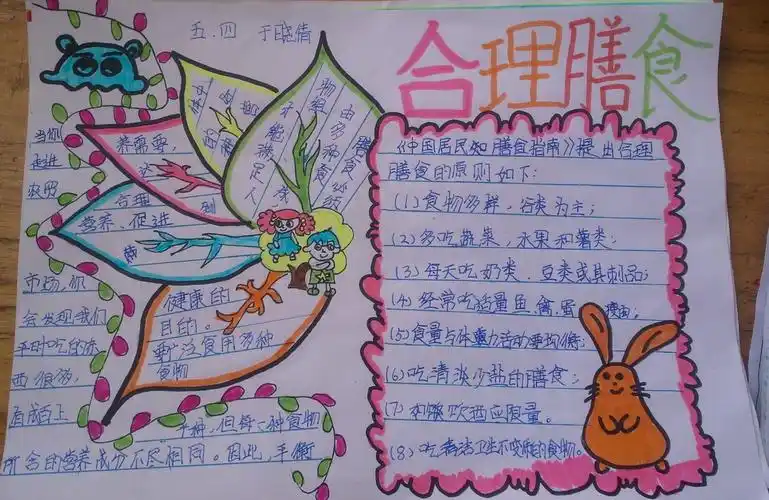 五.四 于晓倩
合理膳食
《中国居民知膳食指南》提出合理
膳食的原则如下：
(1)食物多样，谷类为主；
(2)多吃蔬菜，水果和薯类；
(3)每天吃奶类、豆类或其制品；
(4)经常吃适量鱼、禽、蛋、瘦肉；
(5)食量与体力活动要均衡；
(6)吃清淡少盐的膳食；
(7)饮酒应限量。
(8)吃清洁卫生不变的食物。
膳食必须
由多种食
物组
才能满足人
养需要，
达到
合理
营养、促进
健康的
目的。
要广泛食用多种
食物
当你
走进
农贸
市场，你
会发现我们
平时吃的东
西很多，
有成百上
千种，但每一种食物
所含的营养成分不尽相同。因此，平衡